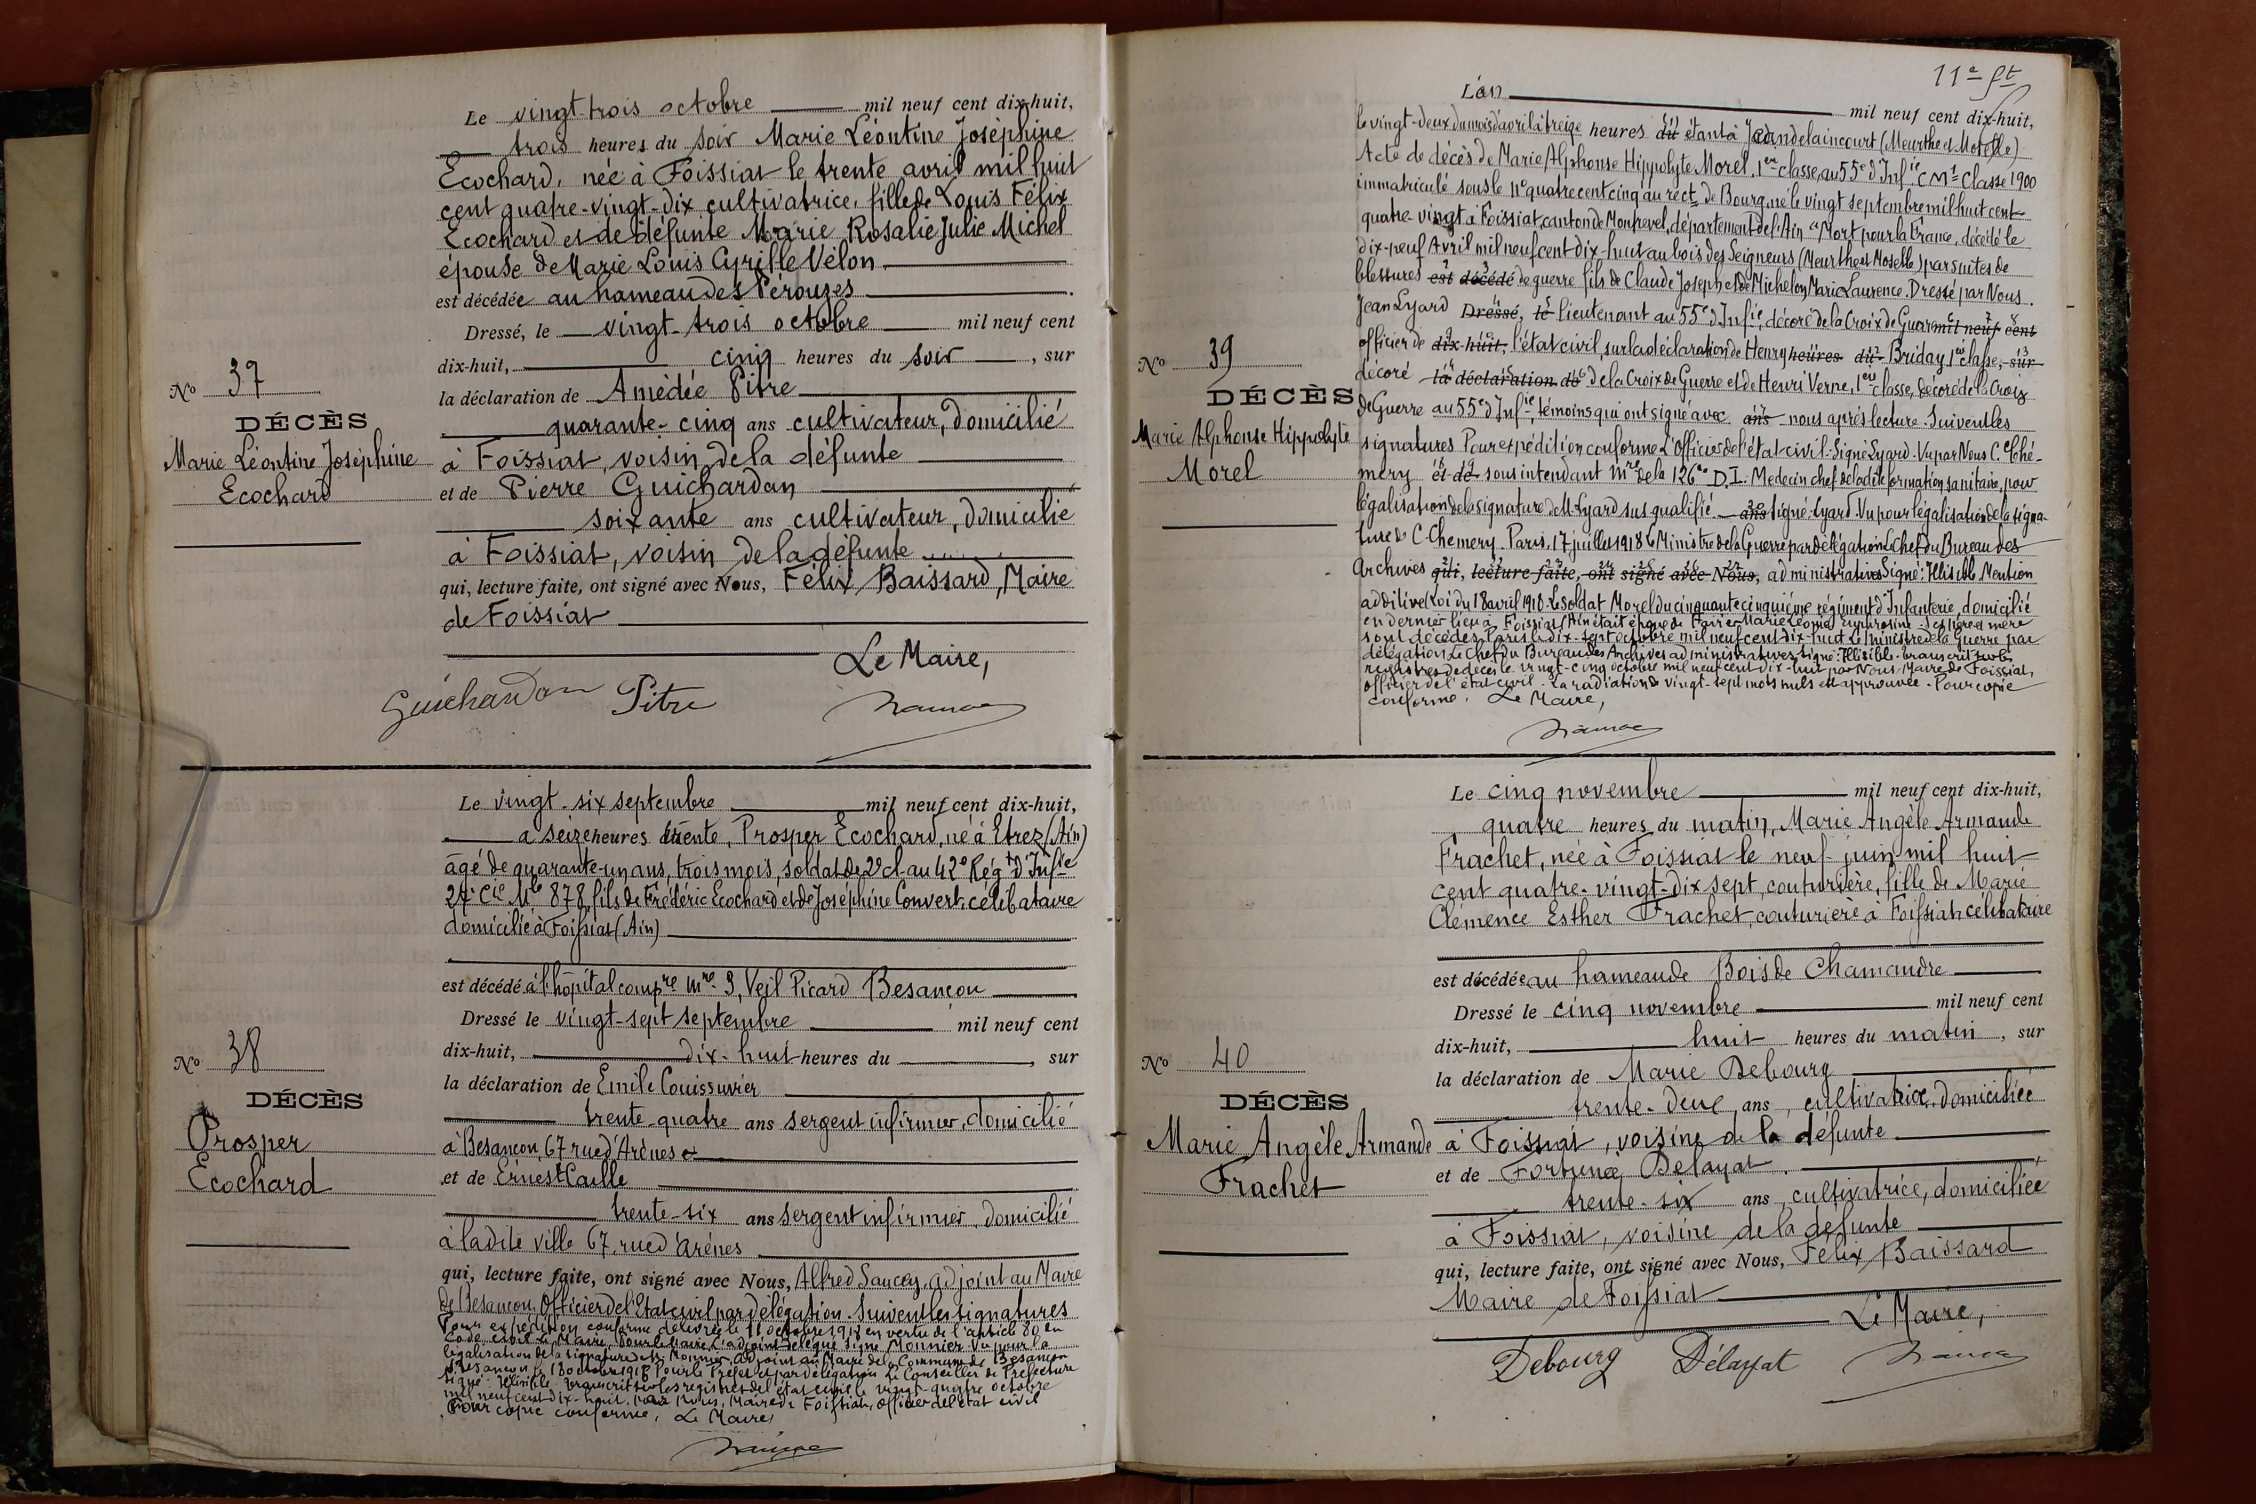 Le vingt-trois octobre mil neuf cent dix-huit,
trois heures du soir Marie Léontine Joséphine
Ecochard, née à Foissiat le trente avril mil huit
cent quatre-vingt-dix cultivatrice, fille de Louis Félix
Ecochard et de défunte Marie Rosalie Julie Michel
épouse de Marie Louis Cyrille Vélon
est décédée au hameau des Perouzes
Dressé, le vingt-trois octobre mil neuf cent
dix-huit, cinq heures du soir, sur
la déclaration de Amédée Pitre
quarante-cinq ans cultivateur, domicilié
à Foissiat, voisin de la défunte
et de Pierre Guichardan
soixante ans cultivateur, domicilié
à Foissiat, voisin de la défunte
qui, lecture faite, ont signé avec Nous, Félix Baissard, Maire
de Foissiat
Le Maire,
Guichardan Pitre
No 37
DÉCÈS
Marie Léontine Joséphine
Ecochard
Le vingt-six septembre mil neuf cent dix-huit,
a seize heures trente, Prosper Ecochard, né à Etrez (Ain)
âgé de quarante-un ans, trois mois, soldat de 2e cl. au 42e Régt d'Infie
27e Cie Mle 878, fils de Frédéric Ecochard et de Joséphine Convert, célibataire
domicilié à Foissiat (Ain)
est décédé à l'hôpital compre mre 3, Veil Picard Besançon
Dressé le vingt-sept septembre mil neuf cent
dix-huit, dix-huit heures du , sur
la déclaration de Emile Couissuvier
trente-quatre ans sergent infirmier, domicilié
à Besançon 67 rue d'Arènes
et de Ernest Caille
trente-six ans sergent infirmier, domicilié
à ladite ville 67, rue d'arènes
qui, lecture faite, ont signé avec Nous, Alfred Saucey, adjoint au Maire
de Besançon, Officier de l'Etat civil par délégation. Suivent les signatures
Pour expédition conforme délivrée le 11 octobre 1918 en vertu de l'article 80 du
Code civil Le Maire, Pour le Maire, L'adjoint délégué signé Monnier. Vu pour la
légalisation de la signature de M. Monnier, adjoint au Maire de la Commune de Besançon
Besançon le 13 octobre 1918 Pour le Préfet et par délégation Le Conseiller de Préfecture
signé: Illisible. Transcrit sur les registres de l'état civil le vingt-quatre octobre
mil neuf cent dix-huit, par Nous, Maire de Foissiat, officier de l'état civil
Pour copie conforme, Le Maire,
No 38
DÉCÈS
Prosper
Ecochard
11e ft
L'an mil neuf cent dix-huit,
le vingt-deux du mois d'avril à treize heures du étant à Jeandelaincourt (Meurthe et Moselle)
Acte de décès de Marie Alphonse Hippolyte Morel, 1ere classe, au 55e d'Infie C M 1 Classe 1900
immatriculé sous le no quatre cent cinq au rect de Bourg, né le vingt septembre mil huit cent
quatre-vingt à Foissiat, canton de Montrevel, département de l'Ain "Mort pour la France, décédé le
dix-neuf Avril mil neuf cent dix-huit au bois des Seigneurs (Meurthe et Moselle) par suites de
blessures est décédé de guerre fils de Claude Joseph et de Michelon Marie Laurence. Dressé par Nous.
Jean Lyard Dressé, le lieutenant au 55e d'Infie, décoré de la Croix de Guerre mil neuf cent
officier de dix-huit, l'état civil sur la déclaration de Henry heures du Briday 1ere classe, sur
décoré la déclaration de de la Croix de Guerre et de Henri Verne, 1ere classe, décoré de la Croix
de Guerre au 55e d'Infie, témoins qui ont signé avec ans nous après lecture. Suivent les
signatures Pour expédition conforme L'officier de l'état civil. Signé Lyard. Vu par Nous C. Ché-
mery et de sous intendant mre de la 126e D.I. Medecin chef de la dite formation sanitaire, pour
légalisation de la signature de M. Lyard sus qualifié ans signé: Lyard. Vu pour légalisation de la signa-
ture de C. Chemery. Paris, 17 juillet 1918 Le Ministre de la Guerre par délégation Le Chef du Bureau des
Archives qui, lecture faite, ont signé avec Nous, administratives Signé: Illisible Mention
additive (Loi du 18 avril 1918. Le soldat Morel du cinquante cinquième régiment d'Infanterie, domicilié
en dernier lieu à Foissiat (Ain était époux de Marie Léonie Euphrosine. Ses père et mère
sont décédés. Paris le dix-sept octobre mil neuf cent dix-huit Le Ministre de la Guerre par
délégation Le Chef du Bureau des Archives administratives signé: Illisible. Transcrit sur les
registres de décès le vingt-cinq octobre mil neuf cent dix-huit par Nous, Maire de Foissiat,
officier de l'état civil. La radiation de vingt-sept mots nuls est approuvée. Pour copie
conforme. Le Maire,
No 39
DÉCÈS
Marie Alphonse Hippolyte
Morel
Le cinq novembre mil neuf cent dix-huit,
quatre heures du matin, Marie Angèle Armande
Frachet, née à Foissiat le neuf juin mil huit
cent quatre-vingt-dix sept, couturière, fille de Marie
Clémence Esther Frachet, couturière à Foissiat, célibataire
est décédée au hameau de Bois de Chamandre
Dressé le cinq novembre mil neuf cent
dix-huit, huit heures du matin, sur
la déclaration de Marie Debourg
trente-deux ans, cultivatrice, domiciliée
à Foissiat, voisine de la défunte
et de Fortunée Delayat
trente-six ans, cultivatrice, domiciliée
à Foissiat, voisine de la défunte
qui, lecture faite, ont signé avec Nous, Félix Baissard
Maire de Foissiat
Le Maire,
Debourg Délayat
No 40
DÉCÈS
Marie Angèle Armande
Frachet